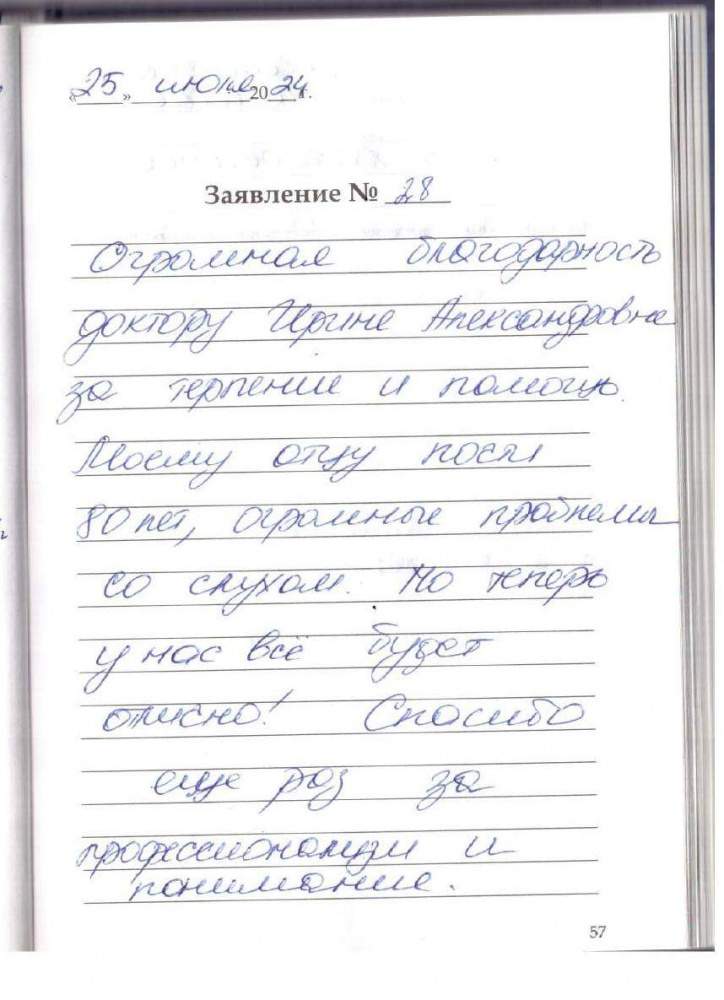 «25» июня 2024 г.
Заявление № 28
Огромная благодарность
доктору Ирине Александровне
за терпение и помощь.
Моему отцу после
80 лет, огромные проблемы
со слухом. Но теперь
у нас всё будет
отлично! Спасибо
еще раз за
профессионализм и
понимание.
57